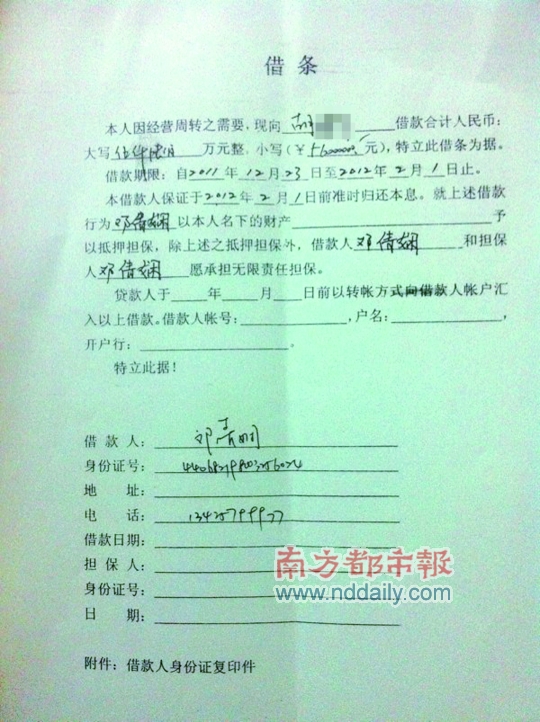 借 条
本人因经营周转之需要，现向 胡 借款合计人民币：
大写 伍仟陆百 万元整，小写（￥56000000元），特立此借条为据。
借款期限：自2011年12月23日至2012年2月1日止。
本借款人保证于2012年2月1日前准时归还本息。就上述借款
行为邓倩娴以本人名下的财产 予
以抵押担保，除上述之抵押担保外，借款人邓倩娴 和担保
人邓倩娴 愿承担无限责任担保。
贷款人于 年 月 日前以转帐方式向借款人帐户汇
入以上借款。借款人帐号： ，户名： ，
开户行： 。
特立此据！
借 款 人： 邓
身份证号：
地 址：
电 话： 13425799977
借款日期：
担 保 人：
身份证号：
日 期：
南方都市報
www.nddaily.com
附件：借款人身份证复印件